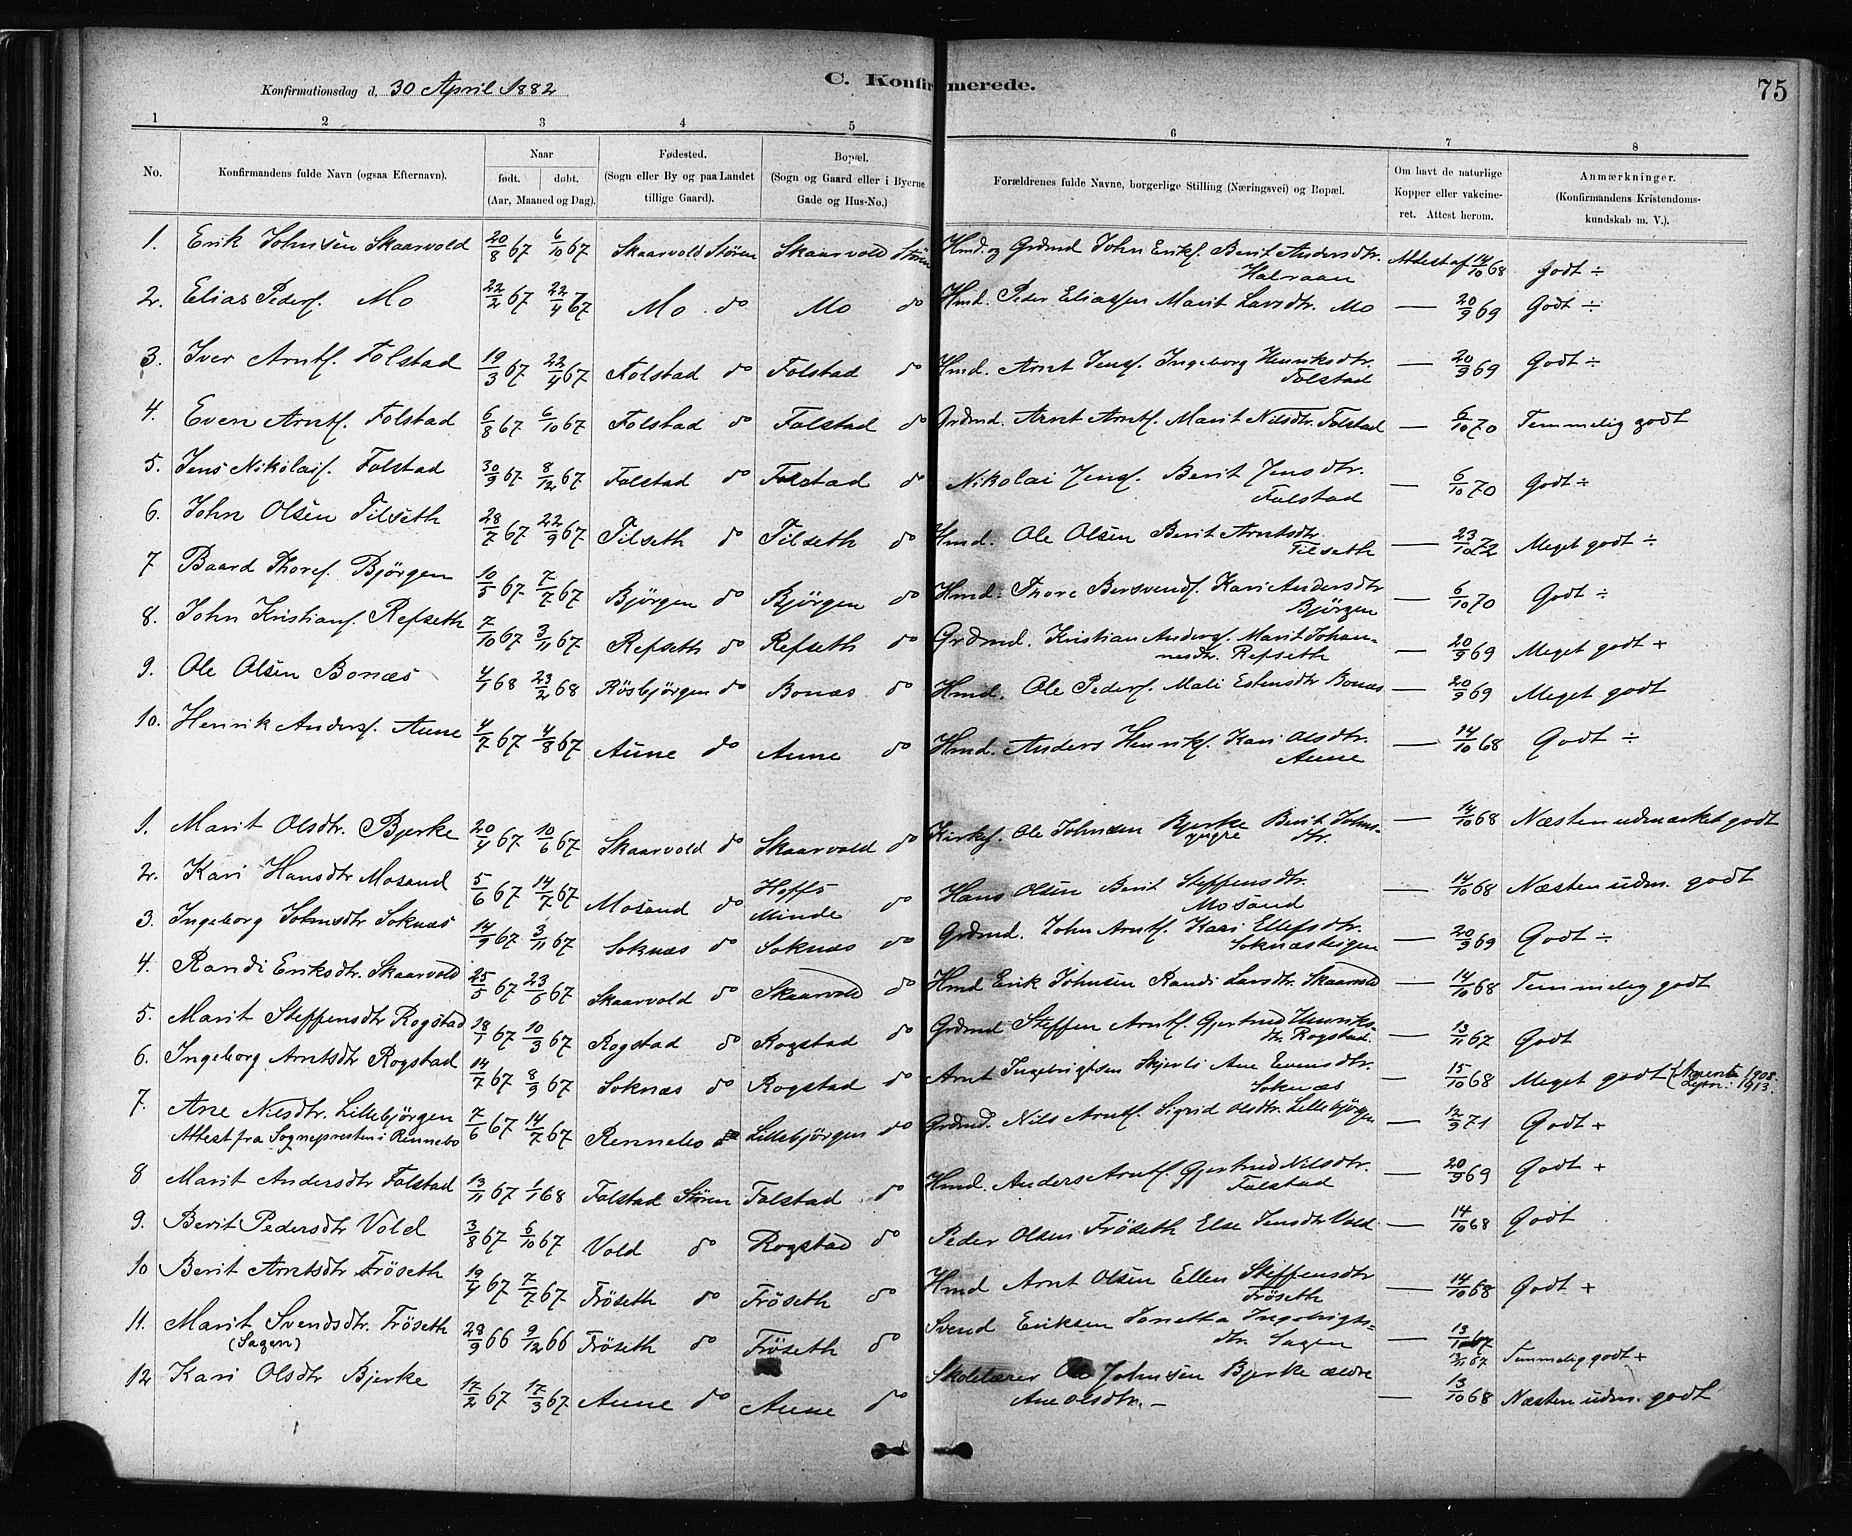 75
C. Konfirmerede.
Konfirmationsdag d. 30 April 1882
1 2 3 4 5 6 7 8
No. Konfirmandens fulde Navn (ogsaa Efternavn). Naar født. døbt. (Aar, Maaned og Dag). Fødested. (Sogn eller By og paa Landet tillige Gaard). Bopæl. (Sogn og Gaard eller i Byerne Gade og Hus-No.) Forældrenes fulde Navne, borgerlige Stilling (Næringsvei) og Bopæl. Om havt de naturlige Kopper eller vakcineret. Attest herom. Anmærkninger. (Konfirmandens Kristendomskundskab m. V.).
1. Erik Johnsen Skaarvold 20/8 67 6/10 67 Skaarvold Støren Skaarvold Støren Hmd. og Grdmd John Eriks. Berit Andersdtr. Halvaan Attest af 14/10 68 Godt ÷
2. Elias Peders. Mo 22/2 67 22/4 67 Mo do Mo do Hmd. Peder Eliassen Marit Larsdtr. Mo — 20/9 69 Godt ÷
3. Iver Arntf. Folstad 19/3 67 22/4 67 Folstad do Folstad do Hmd. Arnt Jensf. Ingeborg Henriksdtr. Folstad — 20/9 69 Godt ÷
4. Even Arntf. Folstad 6/8 67 6/10 67 Folstad do Folstad do Grdmd. Arnt Arntf. Marit Nilsdtr. Folstad — 6/10 70 Temmelig godt
5. Jens Nikolaif. Folstad 30/9 67 8/12 67 Folstad do Folstad do Nikolai Jensf. Berit Jensdtr. Folstad — 6/10 70 Godt ÷
6. John Olsen Tilseth 28/7 67 22/9 67 Tilseth do Tilseth do Hmd. Ole Olsen Berit Arntsdtr. Tilseth — 23/10 72 Meget godt ÷
7 Baard Thoref. Bjørgen 10/5 67 7/7 67 Bjørgen do Bjørgen do Hmd. Thore Bersvendf. Kari Andersdtr Bjørgen — 6/10 70 Godt ÷
8. John Kristianf. Refseth 7/10 67 3/11 67 Refseth do Refseth do Grdmd. Kristian Andersf. Marit Johannesdtr. Refseth — 20/9 69 Meget godt +
9. Ole Olsen Bonæs 4/1 68 23/2 68 Røsbjørgen do Bonæs do Hmd. Ole Pedersf. Mali Estensdtr Bonæs — 20/9 69 Meget godt
10. Henrik Andersf. Aune 4/7 67 4/8 67 Aune do Aune do Hmd. Anders Henrikf. Kari Olsdtr. Aune — 14/10 68 Godt ÷
1. Marit Olsdtr. Bjerke 20/4 67 10/6 67 Skaarvold do Skaarvold do Kirkes. Ole Johnsen Bjerke yngre Berit Johnsdtr. — 14/10 68 Næsten udmærket godt
2. Kari Hansdtr Mosand 5/6 67 14/7 67 Mosand do Hoffs Minde do Hans Olsen Berit Steffensdtr. Mosand — 14/10 68 Næsten udm. godt
3. Ingeborg Johnsdtr Soknæs 14/9 67 3/11 67 Soknæs do Soknæs do Grdmd. John Arntf. Kari Ellefsdtr. Soknæsteigen — 20/9 69 Godt ÷
4. Randi Eriksdtr. Skaarvold 25/5 67 23/6 67 Skaarvold do Skaarvold do Hmd Erik Johnsen Randi Larsdtr. Skaarvold — 14/10 68 Temmelig godt
5. Marit Steffensdtr Rogstad 18/1 67 10/3 67 Rogstad do Rogstad do Grdmd Steffen Arntf. Gjertrud Henriksdtr. Rogstad. — 13/11 67 Godt
6. Ingeborg Arntsdtr Rogstad 14/7 67 8/9 67 Soknæs do Rogstad do Arnt Ingebrigtsen Skjerli Ane Evensdtr. Soknæs — 15/10 68 Meget godt 1908. 1913.
7. Ane Nilsdtr. Lillebjørgen 7/6 67 14/7 67 Rennebo Lillebjørgen do Grdmd. Nils Arntf. Sigrid Olsdtr. Lillebjørgen — 12/9 71 Godt +
Attest fra Sognepresten i Rennebo
8 Marit Andersdtr Folstad 13/11 67 1/1 68 Folstad Støren Folstad do Hmd. Anders Arntf. Gjertrud Nilsdtr. Folstad — 20/9 69 Godt +
9. Berit Pedersdtr Vold 3/8 67 6/10 67 Vold do Rogstad do Peder Olsen Frøseth Else Jensdtr Vold — 14/10 68 Godt
10 Berit Arntsdtr Frøseth 19/4 67 7/7 67 Frøseth do Frøseth do Hmd Arnt Olsen Ellen Steffensdtr Frøseth — 14/10 68 Godt +
11. Marit Svendsdtr. Frøseth (Sagen) 28/9 66 9/12 66 Frøseth do Frøseth do Svend Eriksen Jonetta Ingebrigtsdtr. Sagen — 13/11 67 Temmelig godt +
12 Kari Olsdtr Bjerke 17/2 67 17/3 67 Aune do Aune do Skolelærer Ole Johnsen Bjerke ældre Ane Olsdtr. — — 13/10 68 Næsten udm. godt